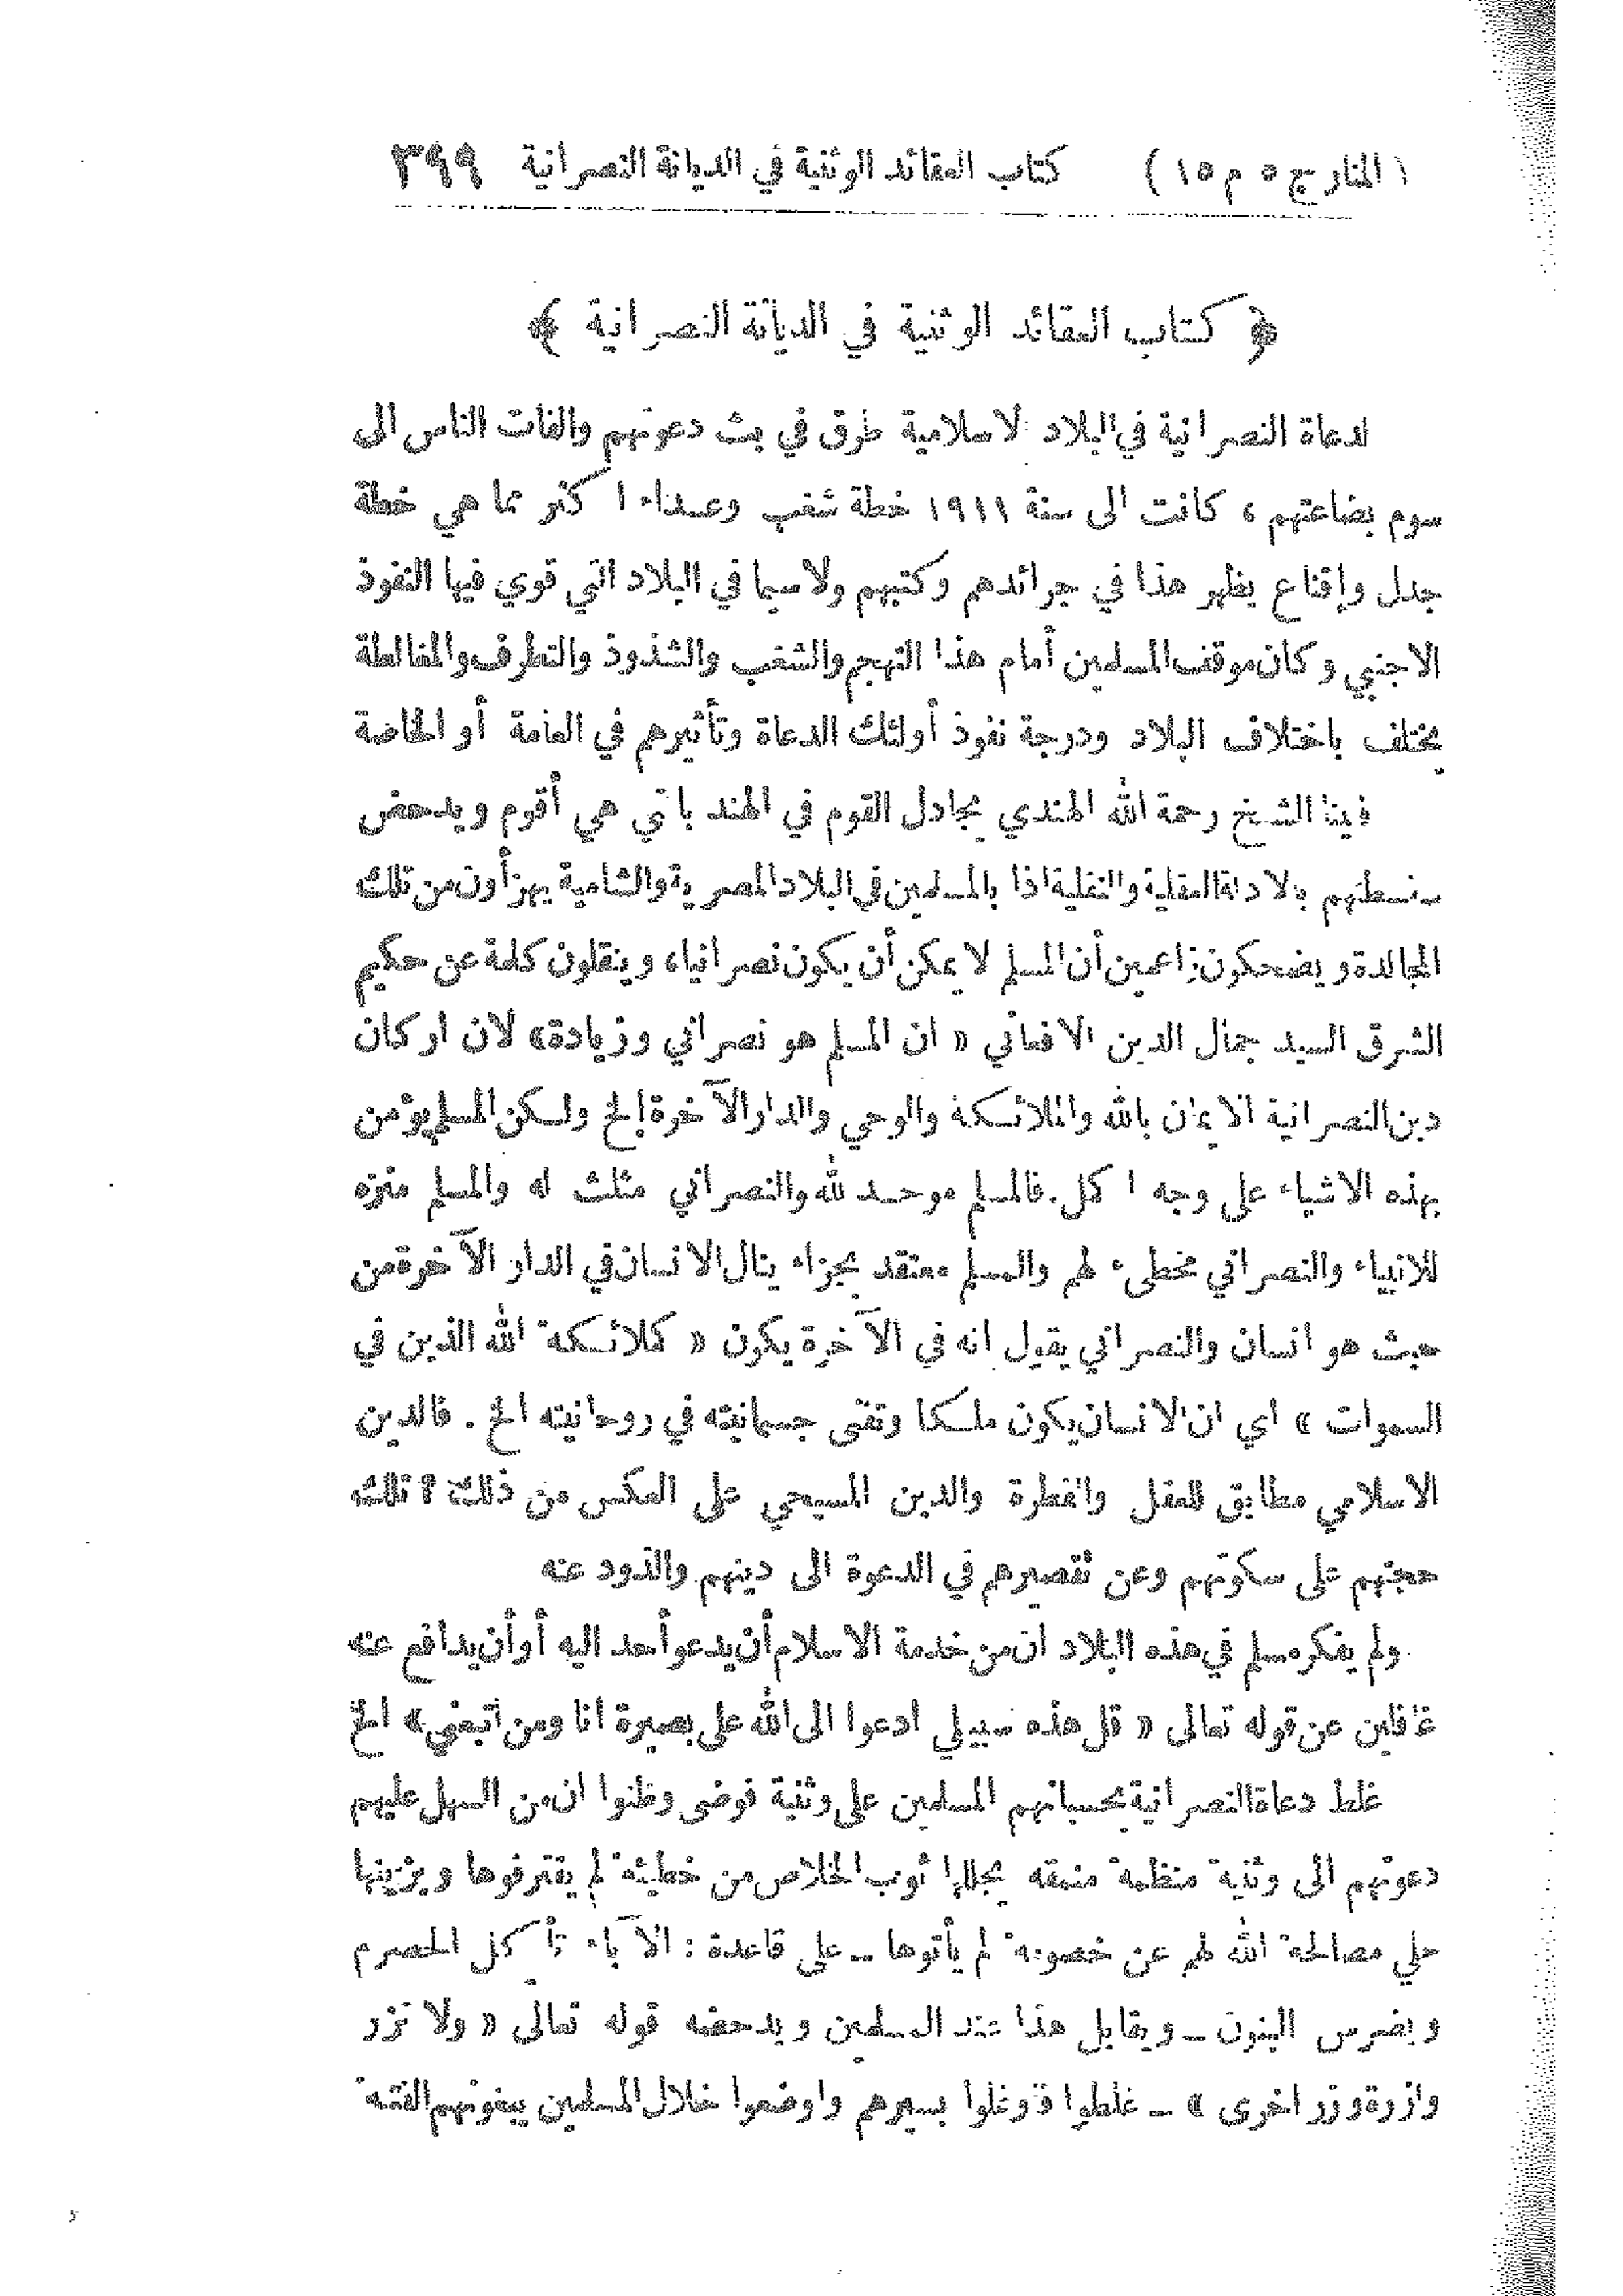 ( المنار ج ٥ م ١٥ ) كتاب العقائد الوثنية في الديانة النصرانية ٣٩٩
﴿ كتاب العقائد الوثنية في الديانة النصرانية ﴾
لدعاة النصرانية في البلاد الاسلامية طرق في بث دعوتهم والفات الناس الى
سوم بضاعتهم ، كانت الى سنة ١٩١١ خطة شغب وعداء اكثر مما هي خطة
جدل وإقناع يظهر هذا في جرائدهم وكتبهم ولاسيما في البلاد التي قوي فيها النفوذ
الاجنبي وكان موقف المسلمين أمام هذا التهجم والشغب والشذوذ والتطرف والمغالطة
يختلف باختلاف البلاد ودرجة نفوذ أولئك الدعاة وتأثيرهم في العامة أو الخاصة
فبينا الشيخ رحمة الله الهندي يجادل القوم في الهند بالتي هي أقوم ويدحض
سفسطتهم بالادلة العقلية والنقلية اذا بالمسلمين في البلاد المصرية والشامية يهزأون من تلك
المجالدة ويضحكون زاعمين أن المسلم لا يمكن أن يكون نصرانيا، وينقلون كلمة عن حكيم
الشرق السيد جمال الدين الافغاني « ان المسلم هو نصراني وزيادة» لان اركان
دين النصرانية الايمان بالله والملائكة والوحي والدار الآخرة إلخ ولكن المسلم يؤمن
بهذه الاشياء على وجه اكمل. فالمسلم موحد لله والنصراني مثلث له والمسلم منزه
للانبياء والنصراني مخطىء لهم والمسلم معتقد بجزاء ينال الانسان في الدار الآخرة من
حيث هو انسان والنصراني يقول انه في الآخرة يكون « كملائكة الله الذين في
السموات » اي ان الانسان يكون ملكا وتفنى جسمانيته في روحانيته الخ . فالدين
الاسلامي مطابق للعقل والفطرة والدين المسيحي على العكس من ذلك ؟ تلك
حجتهم على سكوتهم وعن تقصيرهم في الدعوة الى دينهم والذود عنه
ولم يفكر مسلم في هذه البلاد ان من خدمة الاسلام أن يدعو أحد اليه أو أن يدافع عنه
غافلين عن قوله تعالى « قل هذه سبيلي ادعوا الى الله على بصيرة انا ومن اتبعني» الخ
غلط دعاة النصرانية بحسبانهم المسلمين على وثنية فوضى وظنوا ان من السهل عليهم
دعوتهم الى وثنية منظمة منمقة يجللها ثوب الخلاص من خطيئة لم يقترفوها ويزينها
حلي مصالحة الله لهم عن خصومة لم يأتوها ــ على قاعدة : الآباء تأكل الحصرم
ويضرس البنون ــ ويقابل هذا عند المسلمين ويدحضه قوله تعالى « ولا تزر
وازرة وزر اخرى » ــ غلطوا فأوغلوا بسيرهم واوضعوا خلال المسلمين يبغونهم الفتنة